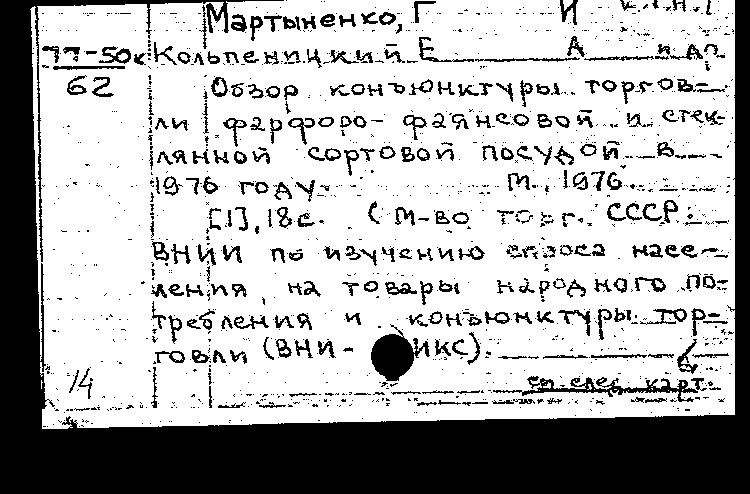 Мартыненко, Г И к.т.н.,
77-50к Кольпеницкий Е А и др.
62 Обзор конъюнктуры торгов-
ли фарфоро-фаянсовой и стек-
лянной сортовой посудой в
1976 году. М., 1976.
[1], 18с. (М-во торг. СССР.
ВНИИ по изучению спроса насе-
ления на товары народного по-
требления и конъюнктуры тор-
говли (ВНИ- ИКС).
14 см след. карт.